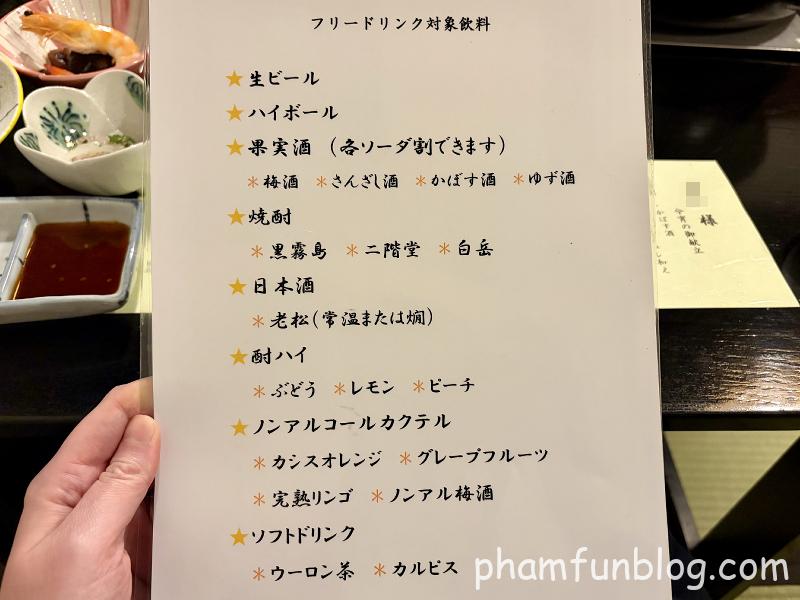 フリードリンク対象飲料
★生ビール
★ハイボール
★果実酒 (各ソーダ割できます)
＊梅酒 ＊さんざし酒 ＊かぼす酒 ＊ゆず酒
★焼酎
＊黒霧島 ＊二階堂 ＊白岳
★日本酒
＊老松(常温または燗)
★酎ハイ
＊ぶどう ＊レモン ＊ピーチ
★ノンアルコールカクテル
＊カシスオレンジ ＊グレープフルーツ
＊完熟リンゴ ＊ノンアル梅酒
★ソフトドリンク
＊ウーロン茶 ＊カルピス
様
今宵の御献立
かぼす酒
phamfunblog.com